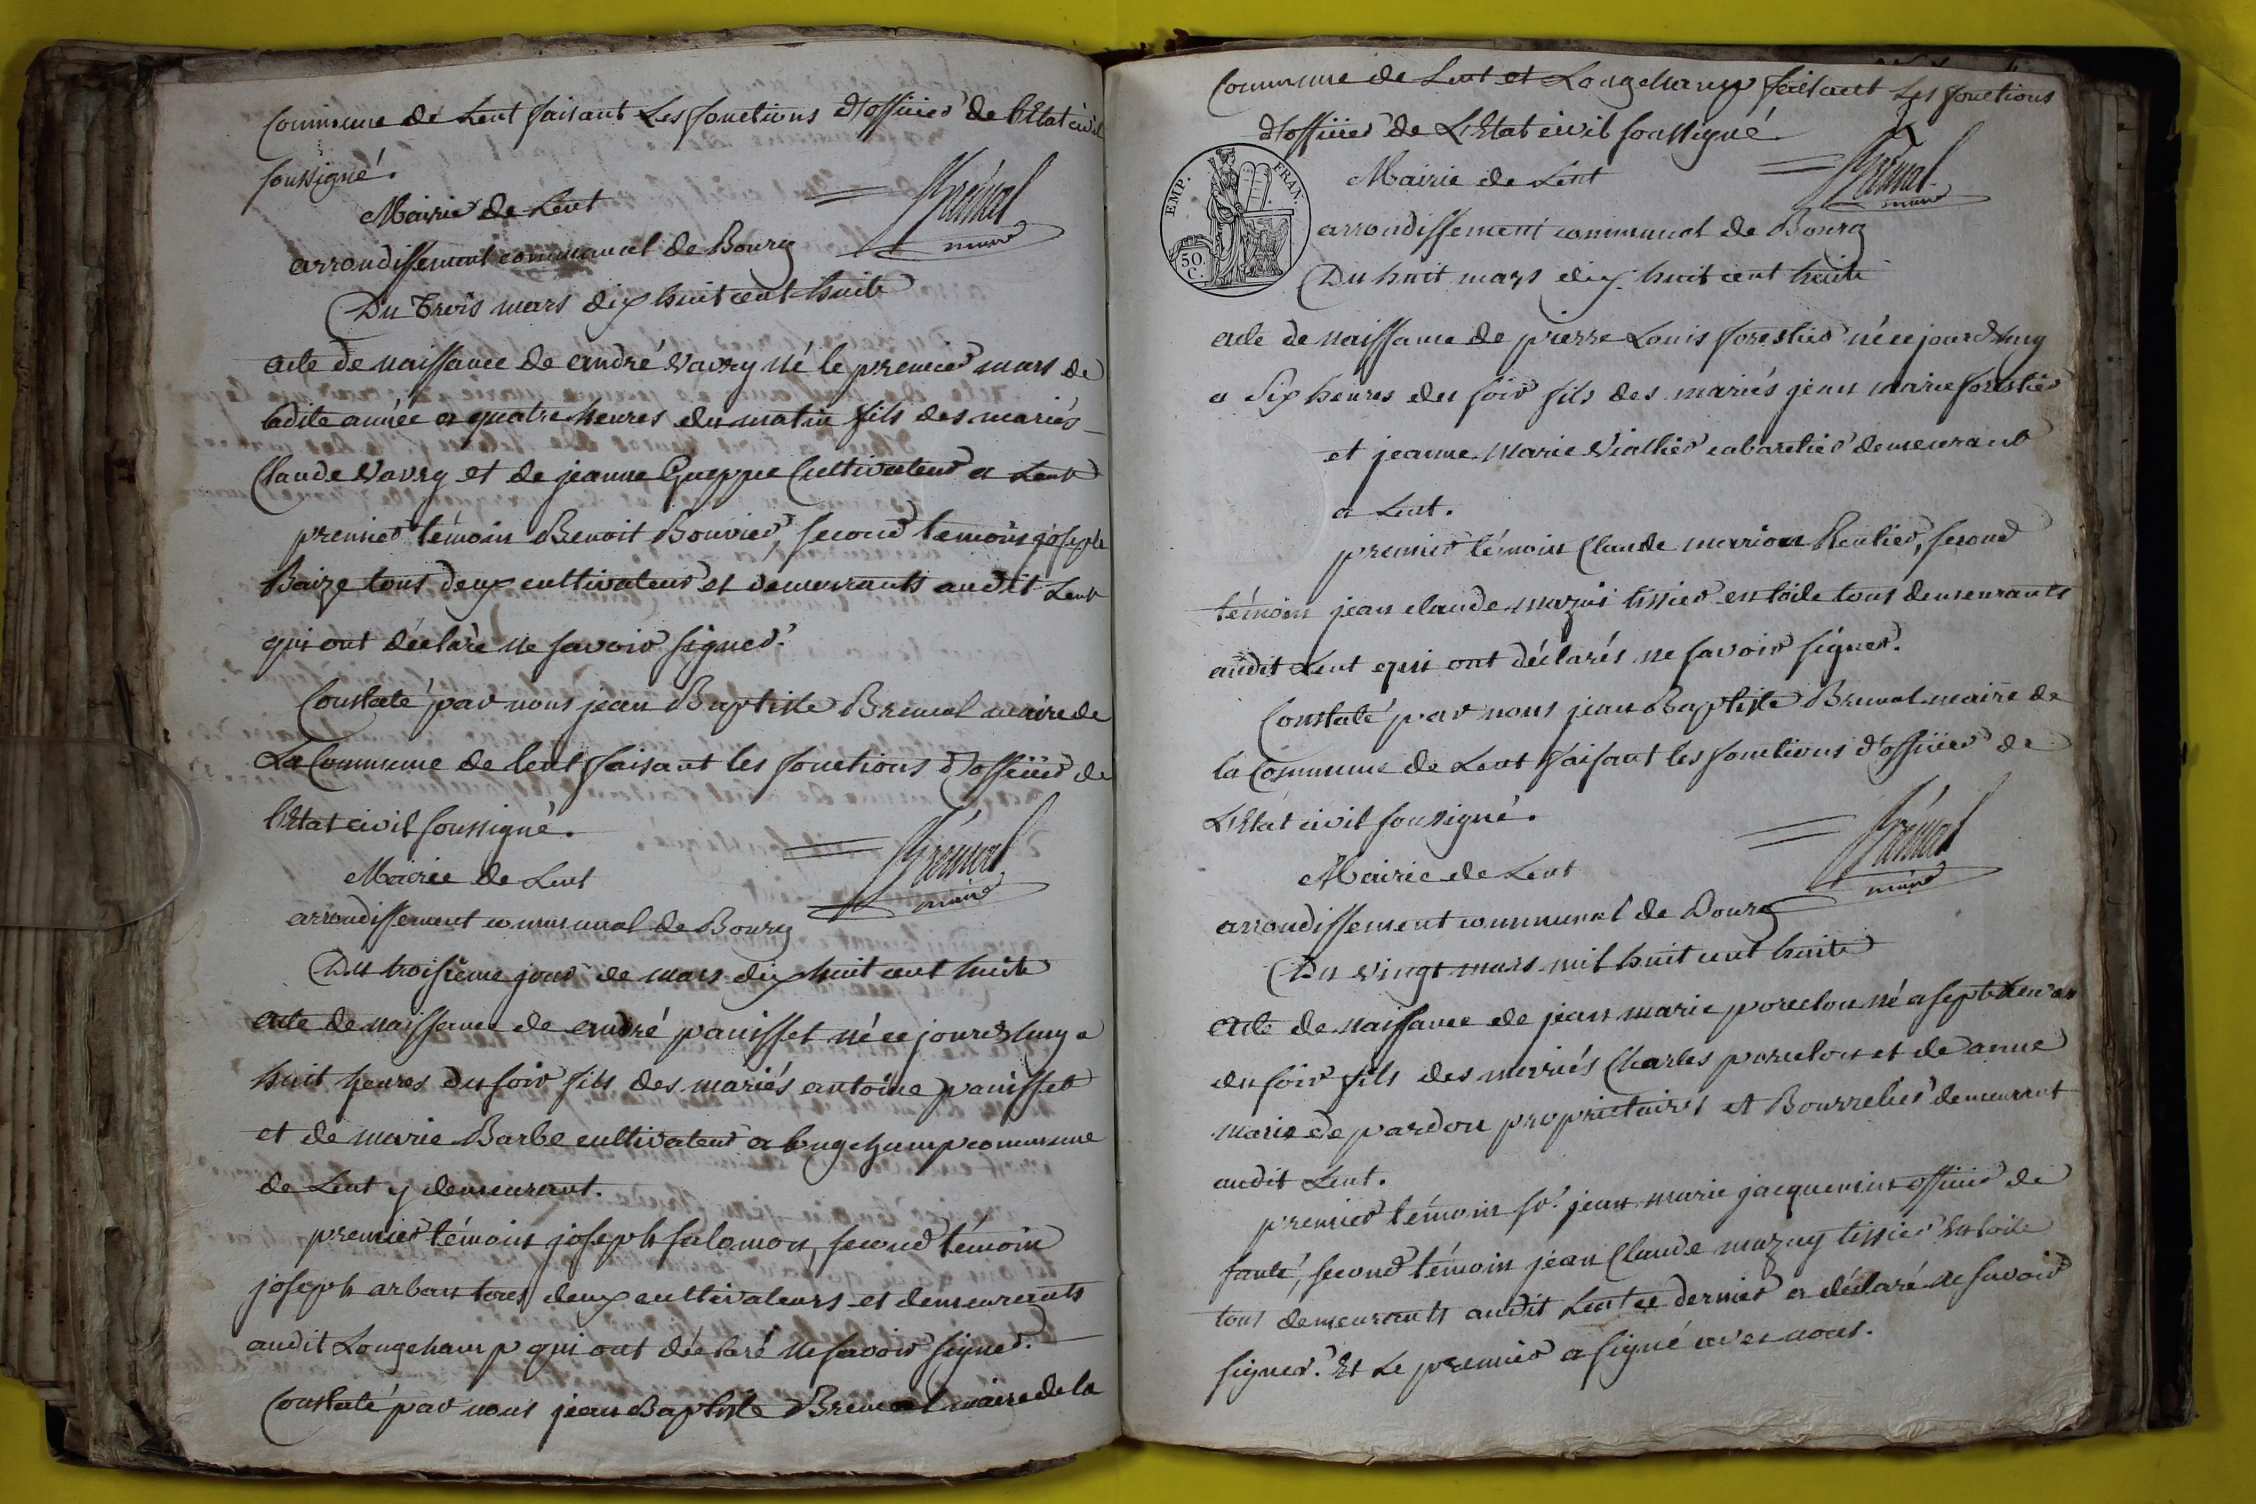 Commune de Lent faisant Les fonctions d'officier de l'Etat civil
soussigné.
Mairie de Lent
arrondissement communal de Bourg
Du Trois mars dix huit cent huit
acte de naissance de andré Vavry né le premier mars de
ladite année a quatre heures du matin fils des mariés
Claude Vavry et de jeanne Gueppe Cultivateur a Lent
premier témoin Benoit Bouvier, second temoin joseph
Baize tout deux cultivateur et demeurants audit Lent
qui ont déclaré ne savoir signer.
Constaté par nous jean Baptiste Breuval maire de
La Commune de lent faisant les fonctions d'officier de
l'Etat civil soussigné.
Breuval
maire
Mairie de Lent
arrondissement communal de Bourg
Du troisième jour de mars dix huit cent huit
acte de naissance de andré panisset né ce jourdhuy a
huit heures du soir fils des mariés antoine panisset
et de marie Barbe cultivateur a longchamp commune
de Lent y demeurant.
premier témoin joseph salomon, second témoin
joseph arban tous deux cultivateurs et demeurants
audit Longchamp qui ont déclaré ne savoir signer.
Constaté par nous jean Baptiste Breuval maire de la
Commune de Lent et Longchamp faisant Les fonctions
d'officier de L'Etat civil soussigné
EMP. FRAN.
50. C.
Mairie de Lent
arrondissement communal de Bourg
Du huit mars dix huit cent huit
acte de naissance de pierre Louis forestier né ce jourdhuy
a Six heures du soir fils des mariés jean marie forestier
et jeanne marie Viallier cabaretier demeurant
a Lent.
premier témoin Claude marion Rentier, second
témoin jean claude mazui tissier en toile tous demeurants
audit Lent qui ont déclarés ne savoir signer.
Constaté par nous jean Baptiste Breuval maire de
la Commune de Lent faisant les fonctions d'officier de
L'Etat civil soussigné.
Breuval
maire
Mairie de Lent
arrondissement communal de Bourg
Du Vingt mars mil huit cent huit
acte de naissance de jean marie porclou né a sept heures
du soir fils des mariés Charles porclou et de anne
marie de pardon propriétaires et Bourrelier demeurant
audit Lent.
premier témoin Sr. jean marie jacquemin officier de
santé, second témoin jean Claude mazuy tissier En toile
tous demeurants audit Lent ce dernier a déclaré ne savoir
signer. Et Le premier a signé avec nous.